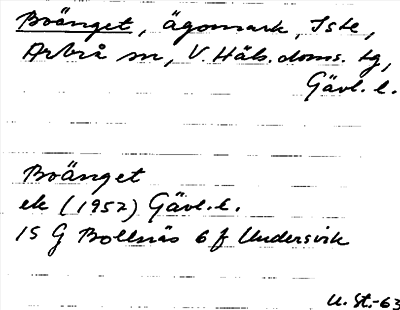 Boänget, ägomark, Iste,
Arbrå sn, V. Häls. doms. tg,
Gävl. l.
Boänget
ek (1952) Gävl. l.
15 G Bollnäs 6 f Undersvik
U. St.-63